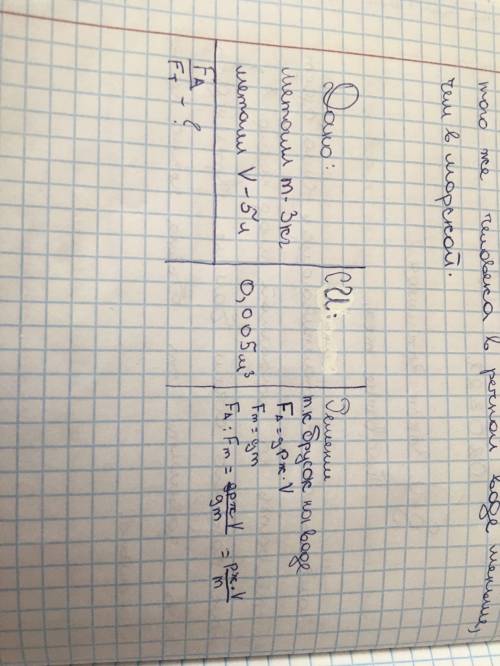 того же человека в речной воде меньше,
чем в морской.
Дано:
металл m - 3кг
металл V - 5л
FA/FT - ?
СИ:
0,005м³
Решении
т.к брусок на воде
FA = gρж·V
Fт = gm
FA : Fт = gρж·V/gm = ρж·V/m